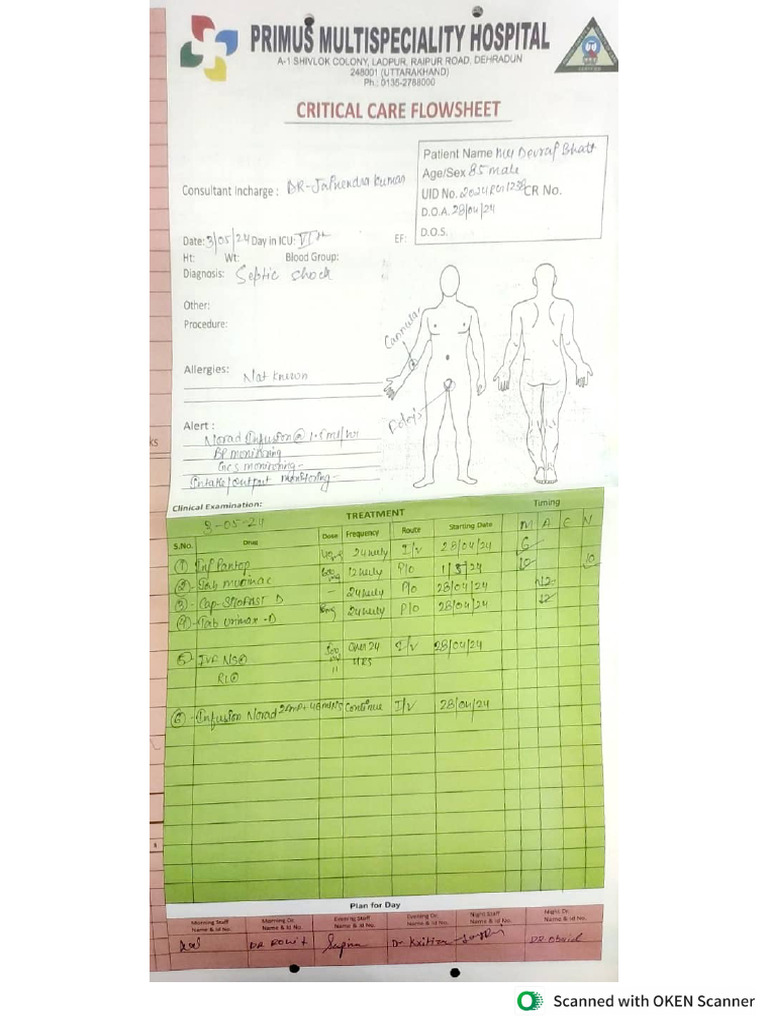 PRIMUS MULTISPECIALITY HOSPITAL
A-1 SHIVLOK COLONY, LADPUR, RAIPUR ROAD, DEHRADUN
248001 (UTTARAKHAND)
Ph.: 0135-2788000
CRITICAL CARE FLOWSHEET
Patient Name Devraj Bhatt
Age/Sex 85 male
Consultant Incharge : DR-Jahnendra Kumar
UID No. CR No.
D.O.A. 28/04/24
D.O.S.
Date: 3/05/24 Day in ICU: VIth EF:
Ht: Wt: Blood Group:
Diagnosis: Septic shock
Other:
Procedure:
Cannula
Allergies: Not known
Foley's
Alert :
Norad Infusion @ 1.5 ml/hr
BP monitoring
GCS monitoring -
Intake/output monitoring -
ks
Clinical Examination:
3-05-24 TREATMENT Timing
S.No. Drug Dose Frequency Route Starting Date M A E N
① Inj Pantop 40mg 24hrly I/V 28/04/24 6
②- Tab mucinac 600mg 12hrly P/O 1/5/24 10 10
③- Cap- D - 24hrly P/O 28/04/24 12
④- Tab Urimax -D 8mg 24hrly P/O 28/04/24 12
⑤- IVF NS@ 500 Over 24 HRS I/V 28/04/24
RL@ "
⑥- Infusion Norad continue I/V 28/04/24
Plan for Day
Morning Staff Name & Id No. Morning Dr. Name & Id No. Evening Staff Name & Id No. Evening Dr. Name & Id No. Night Staff Name & Id No. Night Dr. Name & Id No.
DR ROHIT Sapna Dr Kritika
Scanned with OKEN Scanner